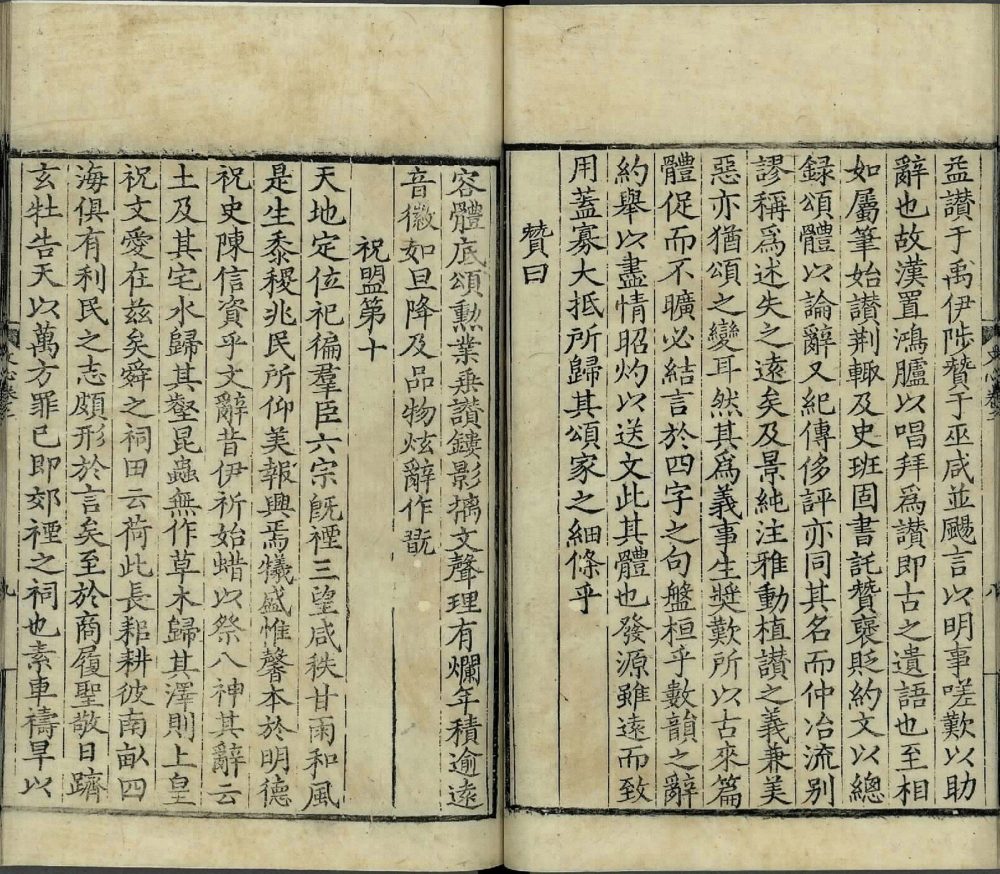 益讃于禹伊陟贊于巫咸並颺言以明事嗟歎以助
辭也故漢置鴻臚以唱拜爲讃即古之遺語也至相
如屬筆始讃荆軻及史班固書託贊襃貶約文以總
録頌體以論辭又紀傳侈評亦同其名而仲冶流别
謬稱爲述失之遠矣及景純注雅動植讃之義兼美
惡亦猶頌之變耳然其爲義事生奬歎所以古來篇
體促而不曠必結言於四字之句盤桓乎數韻之辭
約舉以盡情昭灼以送文此其體也發源雖遠而致
用蓋寡大抵所歸其頌家之細條乎
贊曰
容體底頌勲業垂讃鏤影摛文聲理有爛年積逾遠
音徽如旦降及品物炫辭作翫
祝盟第十
天地定位祀徧羣臣六宗旣禋三望咸秩甘雨和風
是生黍稷兆民所仰美報興焉犧盛惟馨本於明德
祝史陳信資乎文辭昔伊祈始蜡以祭八神其辭云
土及其宅水歸其壑昆蟲無作草木歸其澤則上皇
祝文爰在兹矣舜之祠田云荷此長耜耕彼南畝四
海俱有利民之志頗形於言矣至於商履聖敬日躋
玄牡告天以萬方罪已即郊禋之祠也素車禱旱以
八
九